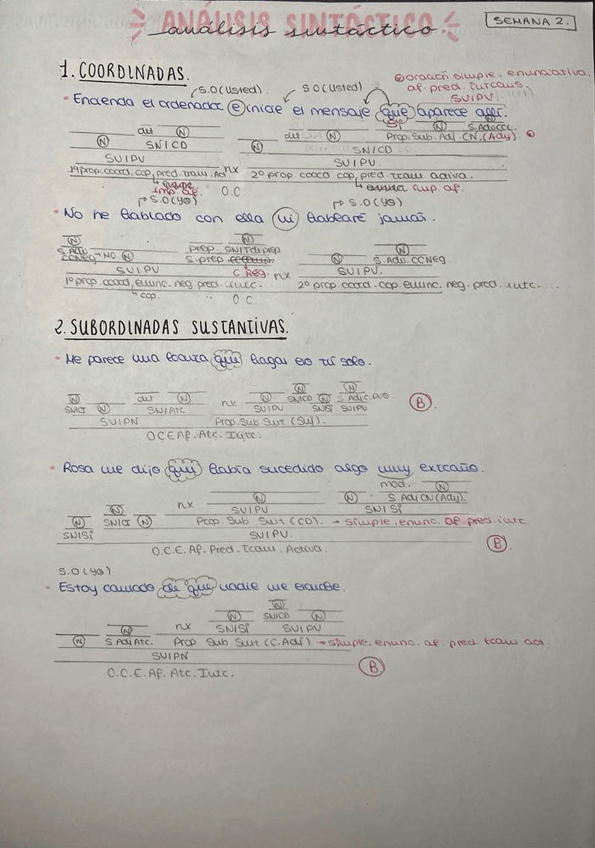 ANÁLISIS SINTÁCTICO
análisis sintáctico
SEMANA 2.
1. COORDINADAS.
S.O (usted) S.O (usted) oración simple. enunciativa. af. pred. intrans.
SV/PV
• Encienda el ordenador e inicie el mensaje que aparece allí.
det N det N SNSi N S.AdvCCL
N SN/CD N Prop.Sub.Adj.CN.(Adj)
SN/CD
SV/PV SV/PV
1ª prop.coord.cop.pred.trans.Act nx 2ª prop coord cop, pred. trans activa.
imp. af. O.C imp. af.
S.O (yo) S.O (yo)
• No he hablado con ella ni hablaré jamás.
N prep SN/Tdprep N
S.Adv CCNEG NO. N S.prep N S.Adv.CCNEG
SV/PV C.Reg. nx SV/PV.
1ª prop.coord, enunc. neg. pred. intr. 2ª prop coord. cop. enunc. neg. pred. intr.
cop. O C
2. SUBORDINADAS SUSTANTIVAS.
• Me parece una locura que hagas eso tú solo.
N det N nx N N N N
SN/CI N SN/Atr SV/PV SN/CD SN/Si SV/PV
SV/PN Prop.Sub.Sust (Suj).
O.C.E Af. Atr. Intr.
B
• Rosa me dijo que había sucedido algo muy extraño.
mod. N
N nx N N S.Adj CN (Ady).
N SN/CI N SV/PV SN/Si
SN/Si Prop Sub Sust (CD). → simple, enunc. af. pred. intr.
SV/PV
O.C.E. Af. Pred. Trans. Activa.
B
S.O (yo)
• Estoy cansado de que nadie me escuche.
N
nx N SN/CD N
N SN/Si SV/PV
N S.Adj Atr. Prop Sub Sust (C.Adj) → simple, enunc. af. pred. trans act.
SV/PN
O.C.E. Af. Atr. Intr.
B